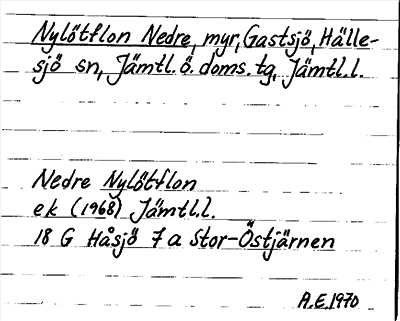 Nylötflon Nedre, myr, Gastsjö, Hälle-
sjö sn, Jämtl. ö. doms. tg, Jämtl.l.
Nedre Nylötflon
ek (1968) Jämtl.l.
18 G Håsjö 7 a Stor-Östjärnen
A.E. 1970